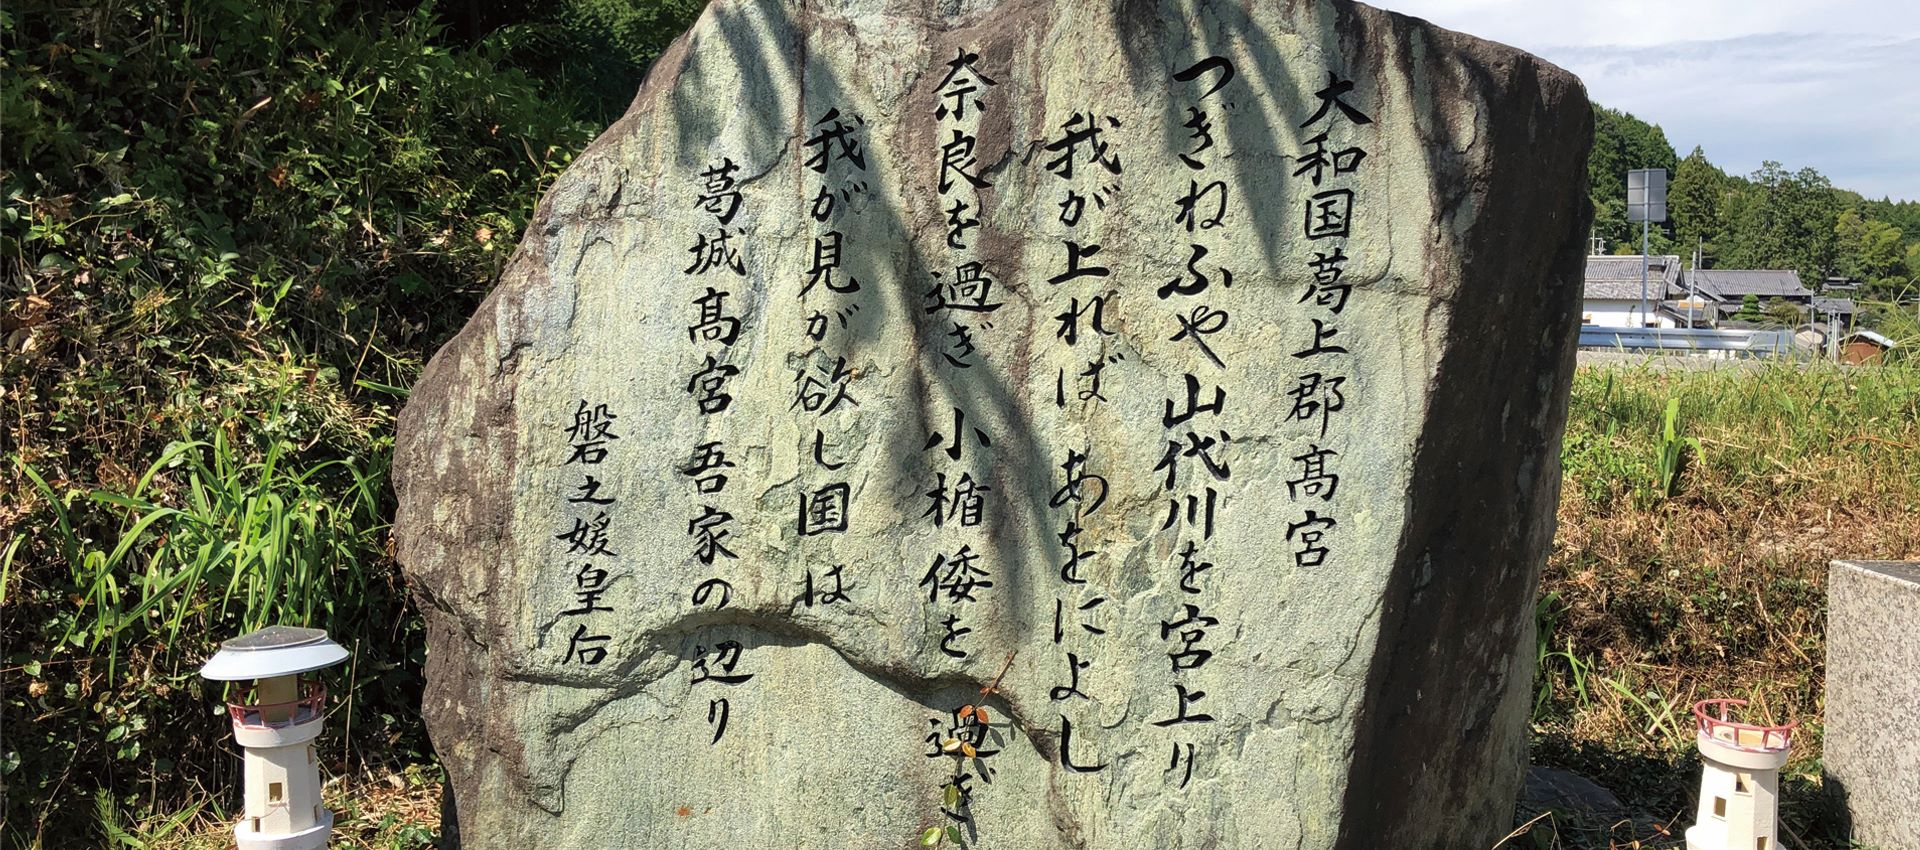 大和国葛上郡髙宮
つぎねふや山代川を宮上り
我が上れば あをによし
奈良を過ぎ 小楯 倭を 過ぎ
我が見が欲し国は
葛城髙宮 吾家の辺り
磐之媛皇后